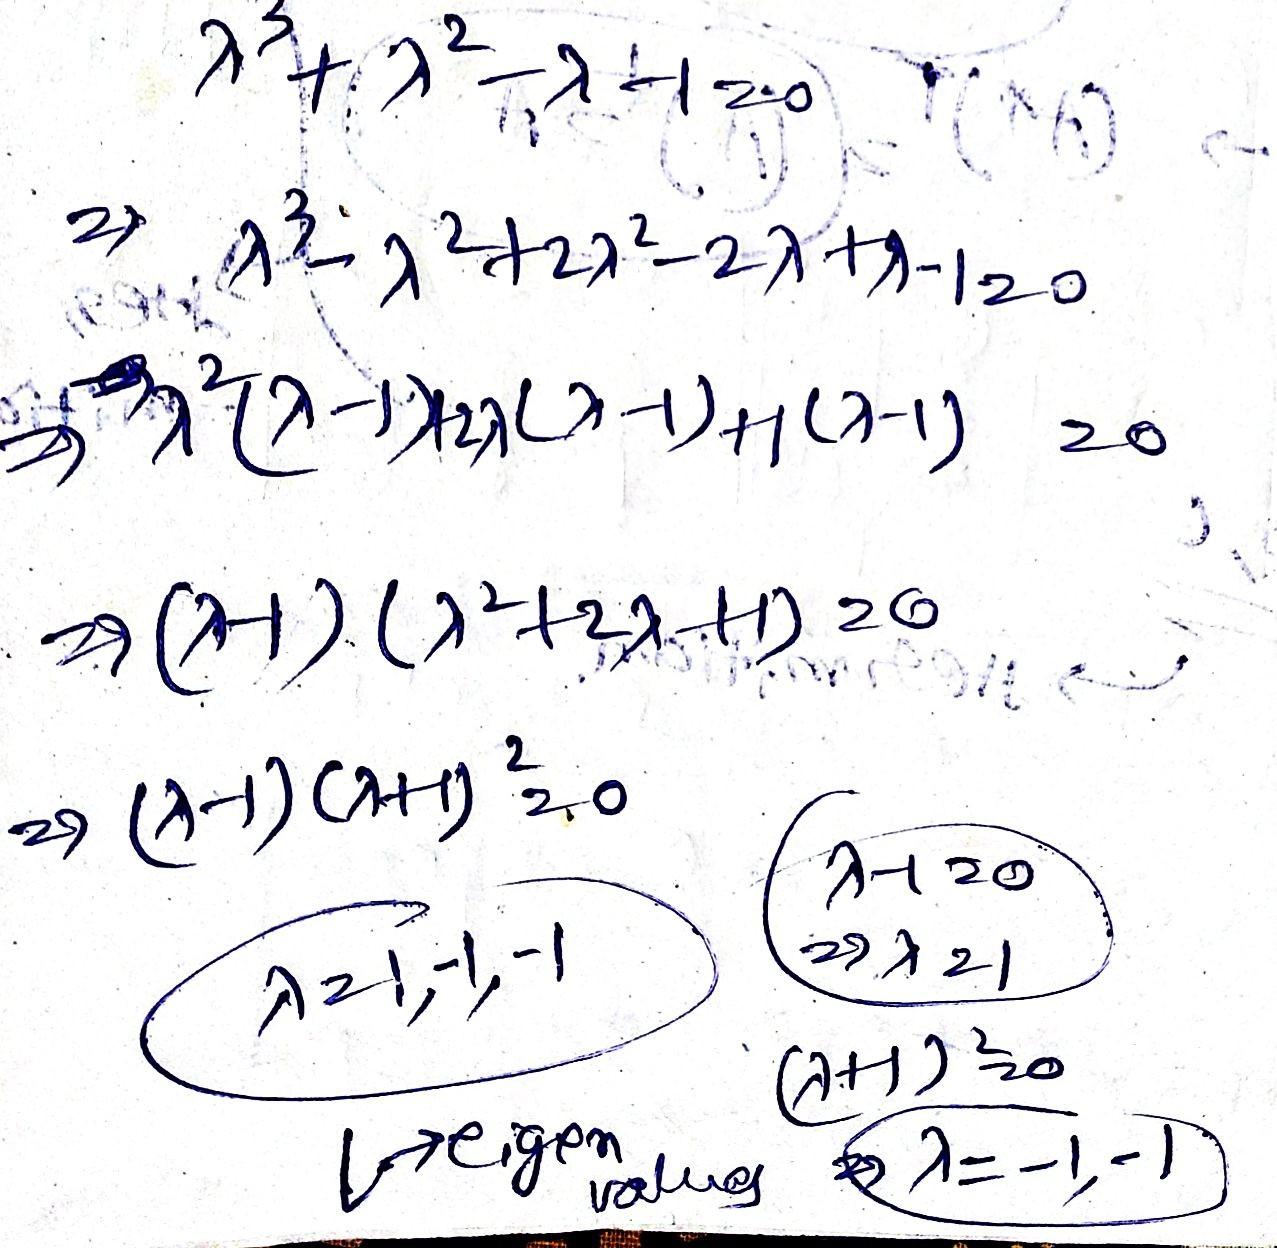 λ³ + λ² - λ - 1 = 0
⇒ λ³ - λ² + 2λ² - 2λ + λ - 1 = 0
⇒ λ²(λ-1) + 2λ(λ-1) + 1(λ-1) = 0
⇒ (λ-1) (λ² + 2λ + 1) = 0
⇒ (λ-1) (λ+1)² = 0
λ - 1 = 0
⇒ λ = 1
λ = 1, -1, -1
(λ+1)² = 0
⇒ λ = -1, -1
↳ eigen
values